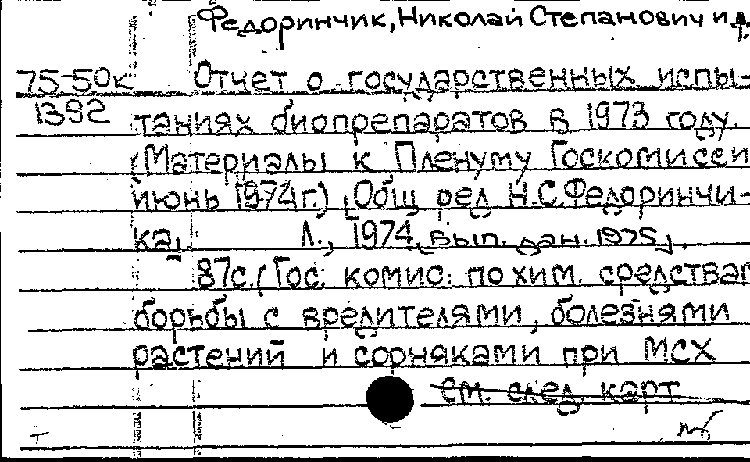 Федоринчик, Николай Степанович и др
75-50к Отчет о государственных испы-
1392 таниях биопрепаратов в 1973 году.
(Материалы к Пленуму Госкомиссии
июнь 1974 г.) [Общ ред Н.С.Федоринчи-
ка]. Л., 1974, [вып. дан. 1975].
87с. (Гос. комис. по хим. средствам
борьбы с вредителями, болезнями
растений и сорняками при МСХ
см. след. карт